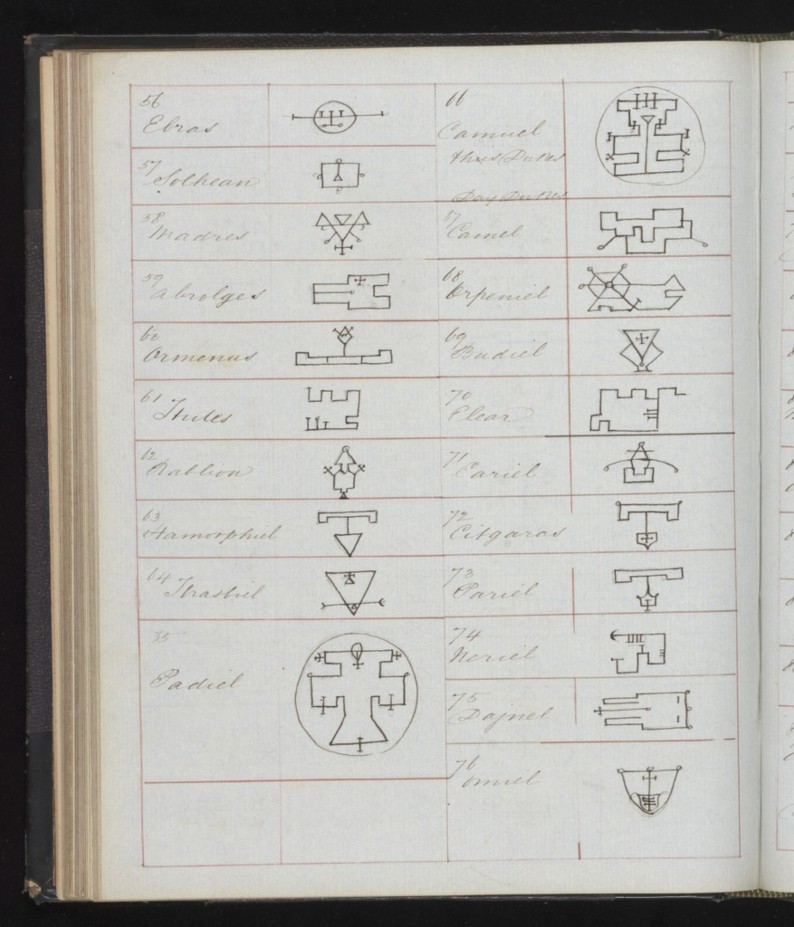 56
Ebras
57 Solhean
58
Madres
59
Abrolges
60
Ormenus
61
Itules
62
Rablion
63
Hamorphiel
64 Itrasbiel
Padiel
66
Camuel
Day Dukes
67
Camel
68
Orpeniel
69
Budiel
70
Elear
71
Cariel
72
Citgaras
73
Pariel
74
Neriel
75
Dajnel
76
Omiel